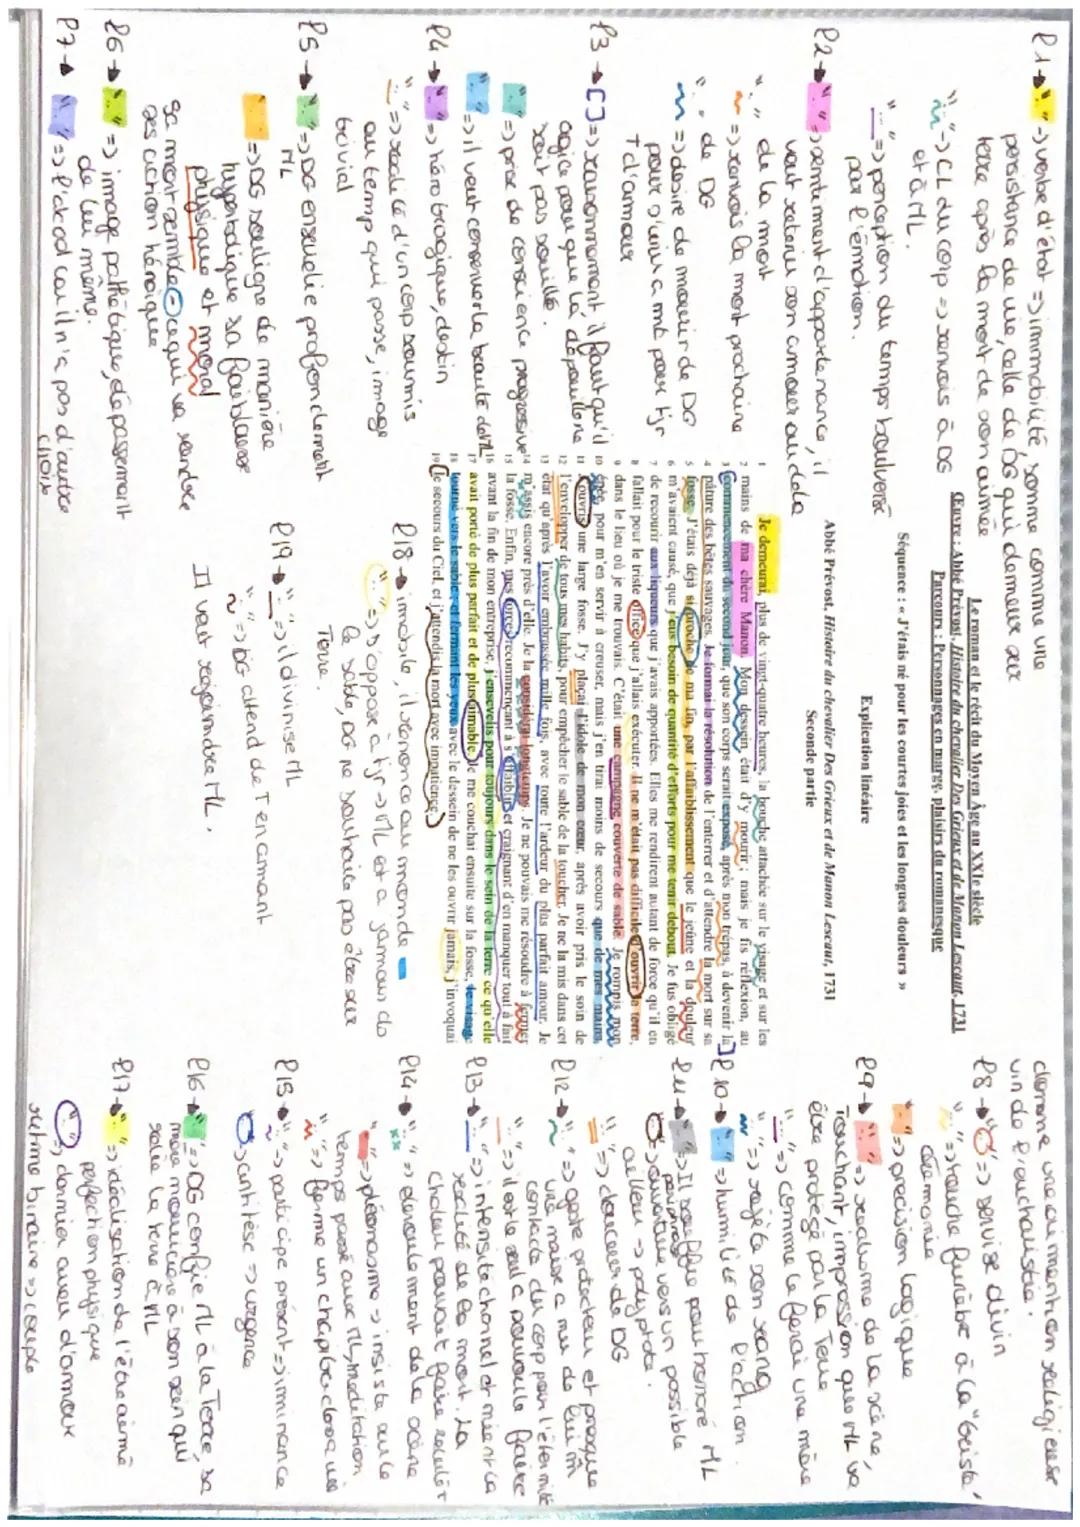 Le roman et le récit du Moyen Âge au XXIe siècle
Œuvre : Abbé Prévost, Histoire du chevalier Des Grieux et de Manon Lescaut, 1731
Parcours : Personnages en marge, plaisirs du romanesque
Séquence : « J'étais né pour les courtes joies et les longues douleurs »
Explication linéaire
Abbé Prévost, Histoire du chevalier Des Grieux et de Manon Lescaut, 1731
Seconde partie
1 Je demeurai, plus de vingt-quatre heures, la bouche attachée sur le visage et sur les
2 mains de ma chère Manon. Mon dessein était d'y mourir ; mais je fis réflexion, au
3 commencement du second jour, que son corps serait exposé, après mon trépas, à devenir la
4 pâture des bêtes sauvages. Je formai la résolution de l'enterrer et d'attendre la mort sur sa
5 fosse. J'étais déjà si proche de ma fin, par l'affaiblissement que le jeûne et la douleur
6 m'avaient causé, que j'eus besoin de quantité d'efforts pour me tenir debout. Je fus obligé
7 de recourir aux liqueurs que j'avais apportées. Elles me rendirent autant de force qu'il en
8 fallait pour le triste office que j'allais exécuter. Il ne m'était pas difficile d'ouvrir la terre,
9 dans le lieu où je me trouvais. C'était une campagne couverte de sable. Je rompis mon
10 épée, pour m'en servir à creuser, mais j'en tirai moins de secours que de mes mains.
11 J'ouvris une large fosse. J'y plaçai l'idole de mon cœur, après avoir pris le soin de
12 l'envelopper de tous mes habits, pour empêcher le sable de la toucher. Je ne la mis dans cet
13 état qu'après l'avoir embrassée mille fois, avec toute l'ardeur du plus parfait amour. Je
14 m'assis encore près d'elle. Je la considérai longtemps. Je ne pouvais me résoudre à fermer
15 la fosse. Enfin, mes forces recommençant à s'affaiblir et craignant d'en manquer tout à fait
16 avant la fin de mon entreprise, j'ensevelis pour toujours dans le sein de la terre ce qu'elle
17 avait porté de plus parfait et de plus aimable. Je me couchai ensuite sur la fosse, le visage
18 tourné vers le sable, et fermant les yeux avec le dessein de ne les ouvrir jamais, j'invoquai
19 le secours du Ciel, et j'attendis la mort avec impatience.
l1 → "..." → verbe d'état => immobilité, somme comme une
persistance de vie, celle de DG qui demeure sur
terre après la mort de son aimée
"..." → CL du corp => renvais à DG
et à ML.
"..." => perception du temps bouleversé
par l'émotion.
l2 → "..." => sentiment d'appartenance, il
veut retenir son amour au dela
de la mort
=> renvais la mort prochaine
de DG
=> désire de mourir de DG
pour s'unir a mL pour tjr
+ d'amour
l3 → [] => raisonnement il faut qu'il
agice pour que la dépouille ne
soit pas souillé.
=> prise de conscience progressive
=> il veut conserver la beauté de ML
l4 → "..." => héro tragique, destin
"..." => réalité d'un corp soumis
au temp qui passe, image
trivial
l5 → "..." => DG ensuelie profondement
ML
=> DG souligne de manière
hyperbolique sa faiblesse
physique et moral
se montre
ses action héroïque
l6 → "..." => image pathétique, dépassement
de lui même.
l7 → "..." => l'alcool car il n'a pas d'autre
choix
donne une dimention religieuse
vin de l'eucharistie.
l8 → "O" => servise divin
"..." => touche funèbre à la "triste"
cérémonie
=> précision logique
l9 → "..." => réalisme de la scène,
touchant, impression que ML va
être protégé par la Terre
"..." => comme le ferai une mère
"..." => rejète son rang
l10 → "..." => humilité de l'action.
l11 → "..." => Il souffre pour honoré ML
périphrase
O, ouverture vers un possible
ailleurs → polyptote.
"..." => douceur de DG
l12 → "..." => geste protecteur et presque
contacte du corp pour l'éternité
l13 → "..." => intensité charnel et
réalité de la mort. La
chaleur pourrait faire reculer
l14 → "..." => déroulement de la scène
"..." => pléonasme → insiste sur le
temps passé avec ML, méditation
"..." => ferme un chapitre, clore une
l15 → "..." → participe présent => imminence
O, antithèse => urgence
l16 → "..." => DG confie ML à la Terre, sa
mère
l17 → "..." => idéalisation de l'être aimé
perfection physique
"O", dernier aveu d'amour
rythme binaire => couple
l18 → immobile, il renonce au monde
"..." => s'oppose a tjr → ML est a jamais ds
le sable, DG ne souhaite pas être sur
Terre.
l19 → "..." → il divinise ML
"..." => DG attend de T en amant
Il veut rejoindre ML.